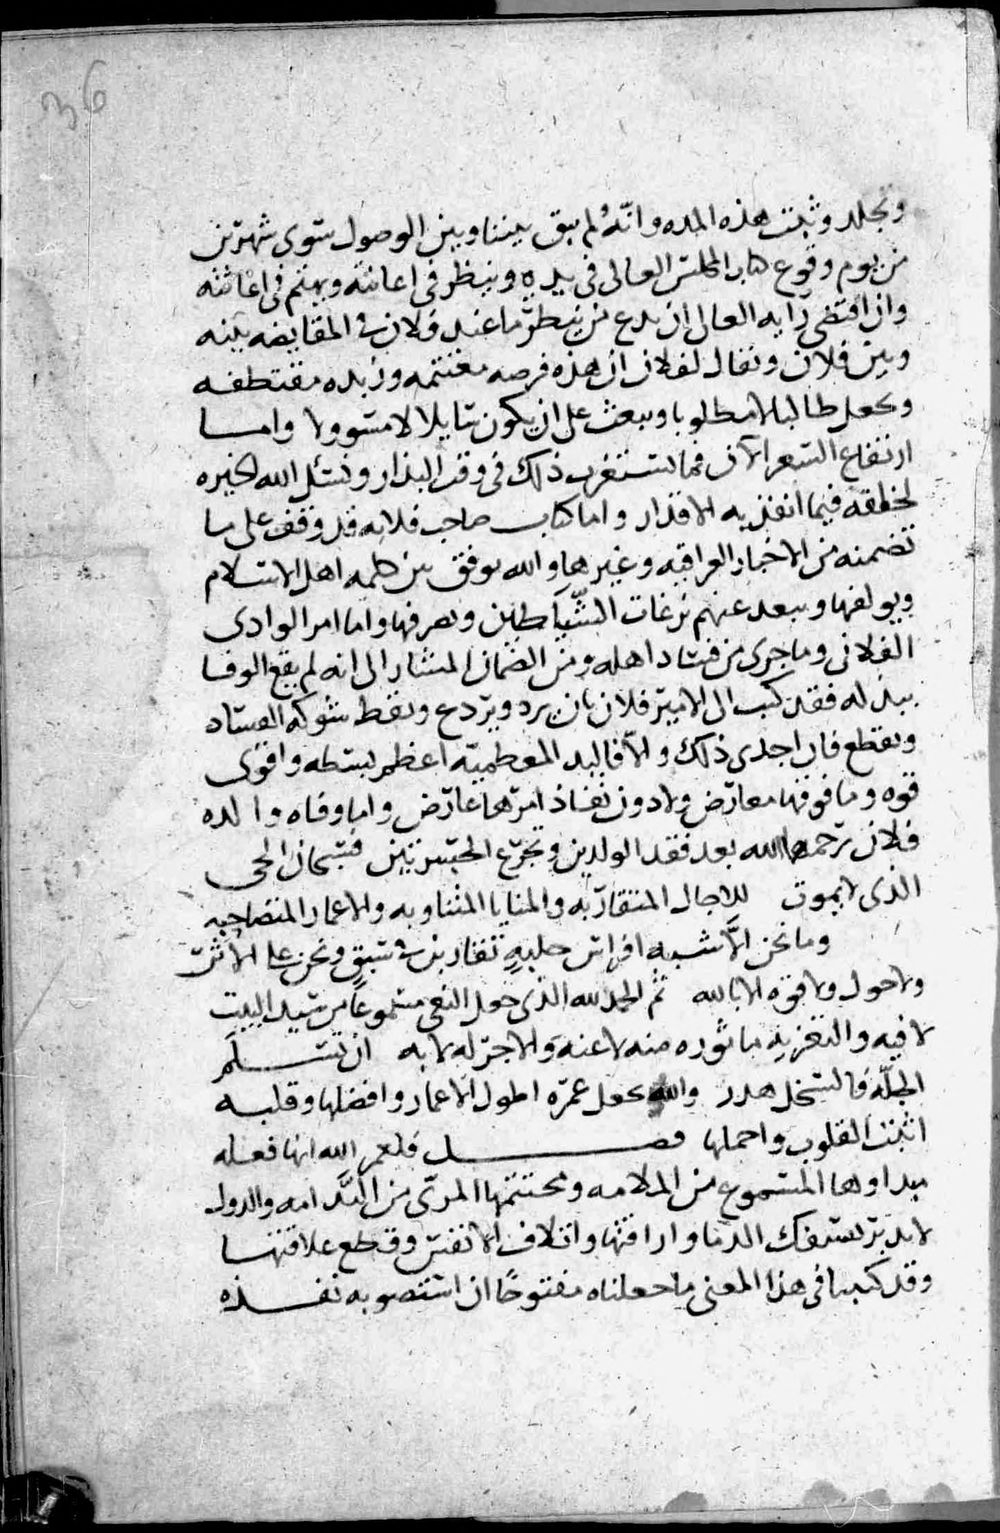 36
وتجلد وثبت هذه المده وانه لم يبق بيننا وبين الوصول سوى شهرين
من يوم وقوع كتاب المجلس العالى فى يده وينظر فى اعانته ويهتم فى اغاثته
وان اقتضى رايه العالى ان يدع من ينظر ما عند فلان فى المقايضه بينه
وبين فلان ونقال لفلان ان هذه فرصه مغتنمه وزبده مقتطفه
ويجعل طالبا لا مطلوبا ويبعث على ان يكون سايلا لا مسوولا واما
ارتفاع السعر الآن فما يستغرب ذلك فى وقت البذار ونسئل الله الخيره
لخلقه فيما انفذ به الاقدار واما كتاب صاحب فلانه فقد وقف على ما
تضمنه من الاخبار العراقيه وغيرها والله يوفق بين كلمه اهل الاسلام
ويولفها ويبعد عنهم نزغات الشياطين ويصرفها واما امر الوادى
الفلانى وما جرى من فساد اهله ومن الضمان المشار الى انه لم يقع الوفا
ببذله فقد كتب الى الامير فلان بان يرد ويردع ويقط شوكه الفساد
ويقطع فان اجدى ذلك والا فاليد المعظميه اعظم بسطه واقوى
قوه وما فوقها معارض ولا دون نفاذ امرها عارض واما وفاه والده
فلان رحمها الله بعد فقد الوالدين وتجرع الحسرتين فسبحان الحى
الذى لا يموت للاجال المتقاربه والمنايا المتناوبه والاعمار المتصاحبه
وما نحن الا شبه افراس حلبه تقاربن فى سبق ونحن على الاثر
ولا حول ولا قوه الا بالله ثم الحمد لله الذى جعل النعى مسموعا من سيد البيت
لا فيه والتعزيه ماثوره منه لا عنه والاجر له لا به ان تسلم
الجله فالسخل هدر والله يجعل عمره اطول الاعمار وافضلها وقلبه
اثبت القلوب واحملها فصل فلعمر الله انها فعله
يبدا اولها المسموع من الملامه ويختتمها المرى من الندامه والدول
لا تدبر بسفك الدما واراقتها واتلاف الانفس وقطع علاقتها
وقد كتبنا فى هذا المعنى ما جعلناه مفتوحا ان استصوبه نفذه